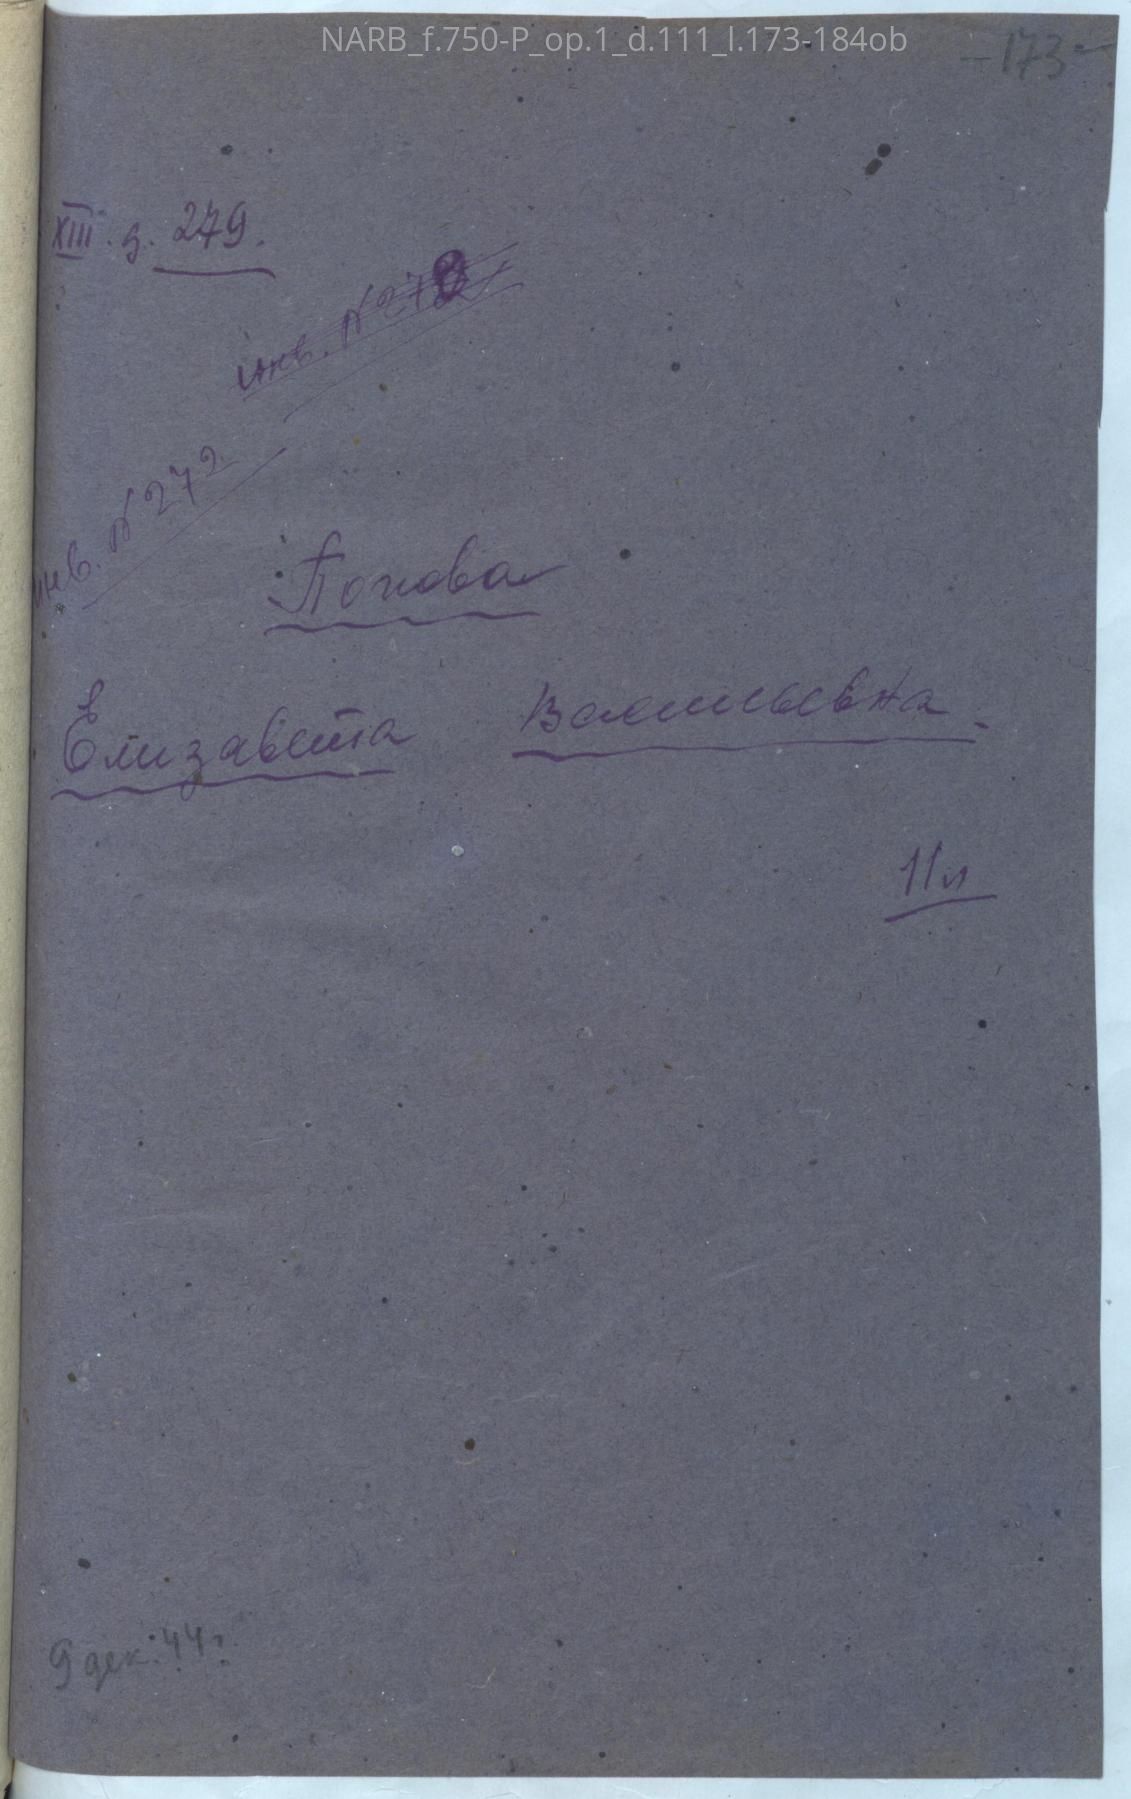 NARB_f.750-P_op.1_d.111_l.173-184ob
-173-
XIII. д. 279.
инв. N 278
инв. N 272
Попова
Елизавета Васильевна.
11л
9 дек. 44г.